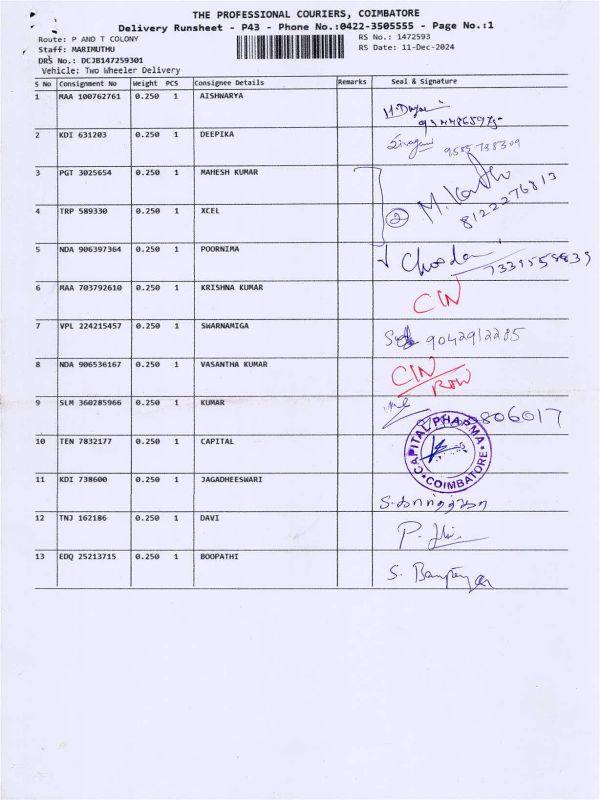 THE PROFESSIONAL COURIERS, COIMBATORE
Delivery Runsheet - P43 - Phone No.:0422-3505555 - Page No.:1
Route: P AND T COLONY RS No.: 1472593
Staff: MARIMUTHU RS Date: 11-Dec-2024
DRS No.: DCJB147259301
Vehicle: Two Wheeler Delivery
S No Consignment No Weight PCS Consignee Details Remarks Seal & Signature
1 MAA 100762761 0.250 1 AISHNARYA
2 KDI 631203 0.250 1 DEEPIKA 9585738309
3 PGT 3025654 0.250 1 MAHESH KUMAR
4 TRP 589330 0.250 1 XCEL 2 8122276813
5 NDA 906397364 0.250 1 POORNIMA 7339558839
6 MAA 703792610 0.250 1 KRISHNA KUMAR CIN
7 VPL 224215457 0.250 1 SWARNAMIGA 9042912285
8 NDA 906536167 0.250 1 VASANTHA KUMAR CIN
9 SLM 360285966 0.250 1 KUMAR 806017
10 TEN 7832177 0.250 1 CAPITAL CAPITAL PHARMA COIMBATORE
11 KDI 738600 0.250 1 JAGADHEESWARI
12 TNJ 162186 0.250 1 DAVI
13 EDQ 25213715 0.250 1 BOOPATHI